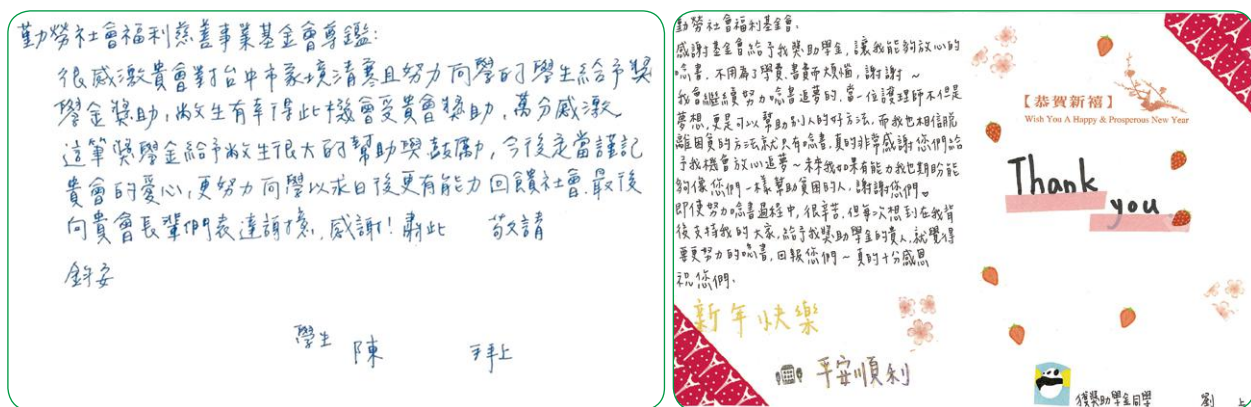 勤勞社會福利慈善事業基金會尊鑑:
很感激貴會對台中市家境清寒且努力向學的學生給予獎
學金獎助,敝生有幸得此機會受貴會獎助,萬分感激。
這筆獎學金給予敝生很大的幫助與鼓勵,今後定當謹記
貴會的愛心,更努力向學以求日後更有能力回饋社會。最後
向貴會長輩們表達謝意,感謝!肅此 敬請
鈞安
學生 陳 拜上
勤勞社會福利基金會:
感謝基金會給予我獎助學金,讓我能夠放心的
唸書,不用為了學費、書費而煩惱,謝謝~
我會繼續努力唸書追夢的,當一位護理師不僅是
夢想,更是可以幫助別人的好方法,而我也相信脫
離困貧的方法就只有唸書,真的非常感謝您們給
予我機會放心追夢~未來我如果有能力我也期盼能
夠像您們一樣幫助貧困的人,謝謝您們。
即使努力唸書過程中,很辛苦,但每次想到在我背
後支持我的大家,給予我獎助學金的貴人,就覺得
要更努力的唸書,回報您們~真的十分感恩
祝您們:
新年快樂
平安順利
【恭賀新禧】
Wish You A Happy & Prosperous New Year
Thank
you
獲獎助學金同學 劉 上